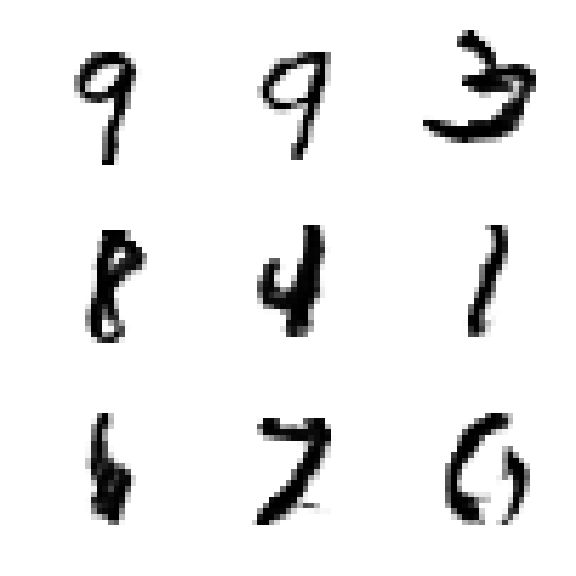 9 9 3
8 4 1
6 7 0